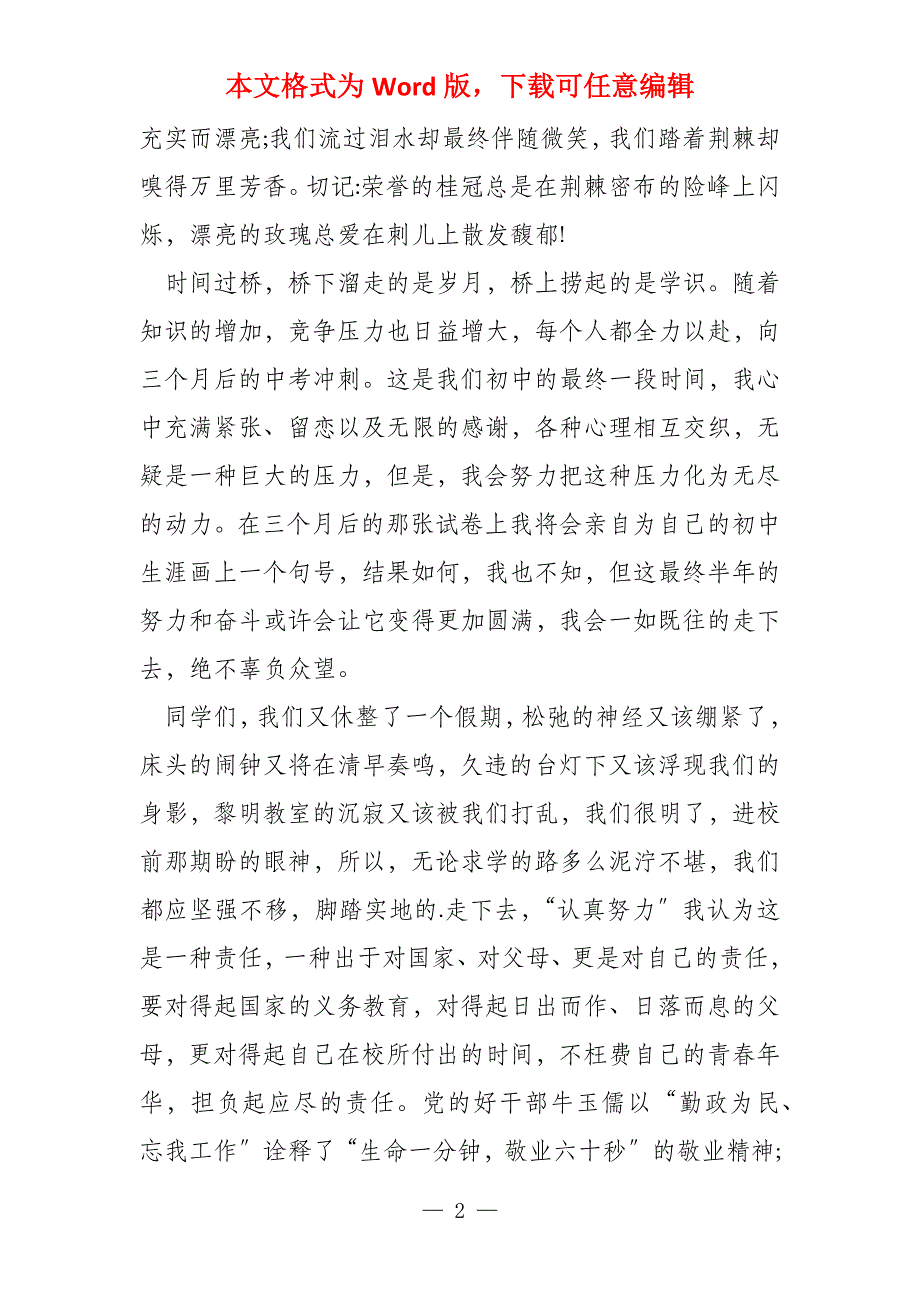 本文格式为 Word 版，下载可任意编辑
充实而漂亮;我们流过泪水却最终伴随微笑，我们踏着荆棘却
嗅得万里芳香。切记:荣誉的桂冠总是在荆棘密布的险峰上闪
烁，漂亮的玫瑰总爱在刺儿上散发馥郁!
时间过桥，桥下溜走的是岁月，桥上捞起的是学识。随着
知识的增加，竞争压力也日益增大，每个人都全力以赴，向
三个月后的中考冲刺。这是我们初中的最终一段时间，我心
中充满紧张、留恋以及无限的感谢，各种心理相互交织，无
疑是一种巨大的压力，但是，我会努力把这种压力化为无尽
的动力。在三个月后的那张试卷上我将会亲自为自己的初中
生涯画上一个句号，结果如何，我也不知，但这最终半年的
努力和奋斗或许会让它变得更加圆满，我会一如既往的走下
去，绝不辜负众望。
同学们，我们又休整了一个假期，松弛的神经又该绷紧了，
床头的闹钟又将在清早奏鸣，久违的台灯下又该浮现我们的
身影，黎明教室的沉寂又该被我们打乱，我们很明了，进校
前那期盼的眼神，所以，无论求学的路多么泥泞不堪，我们
都应坚强不移，脚踏实地的.走下去，“认真努力〞我认为这
是一种责任，一种出于对国家、对父母、更是对自己的责任，
要对得起国家的义务教育，对得起日出而作、日落而息的父
母，更对得起自己在校所付出的时间，不枉费自己的青春年
华，担负起应尽的责任。党的好干部牛玉儒以“勤政为民、
忘我工作〞诠释了“生命一分钟，敬业六十秒〞的敬业精神;
— 2 —